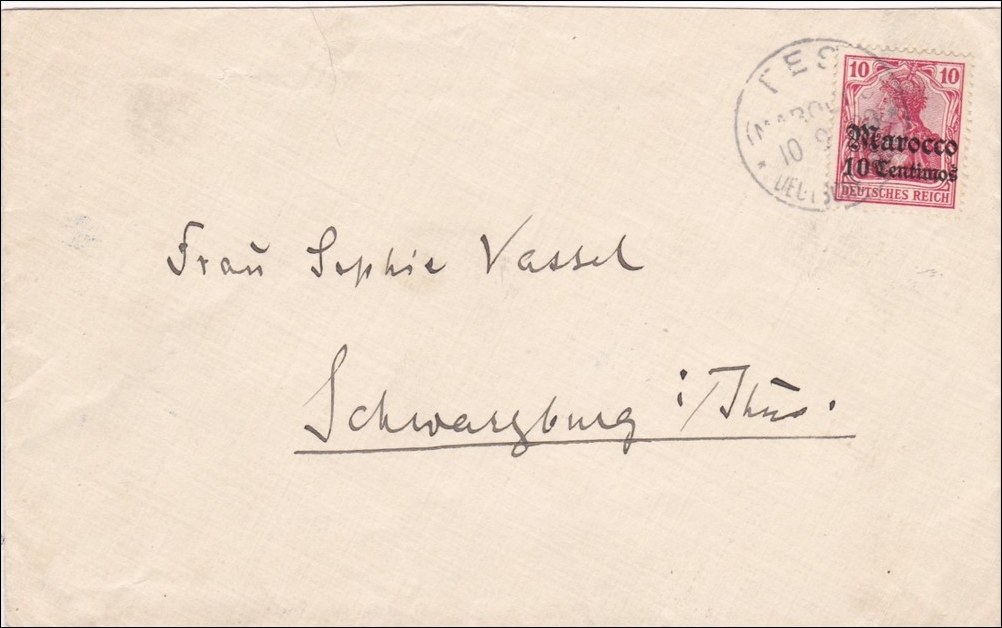 FES
(MAROC
10 9
* DEUTSCHE
10 10
Marocco
10 Centimos
DEUTSCHES REICH
Frau Sophie Vassel
Schwarzburg i/Thür.